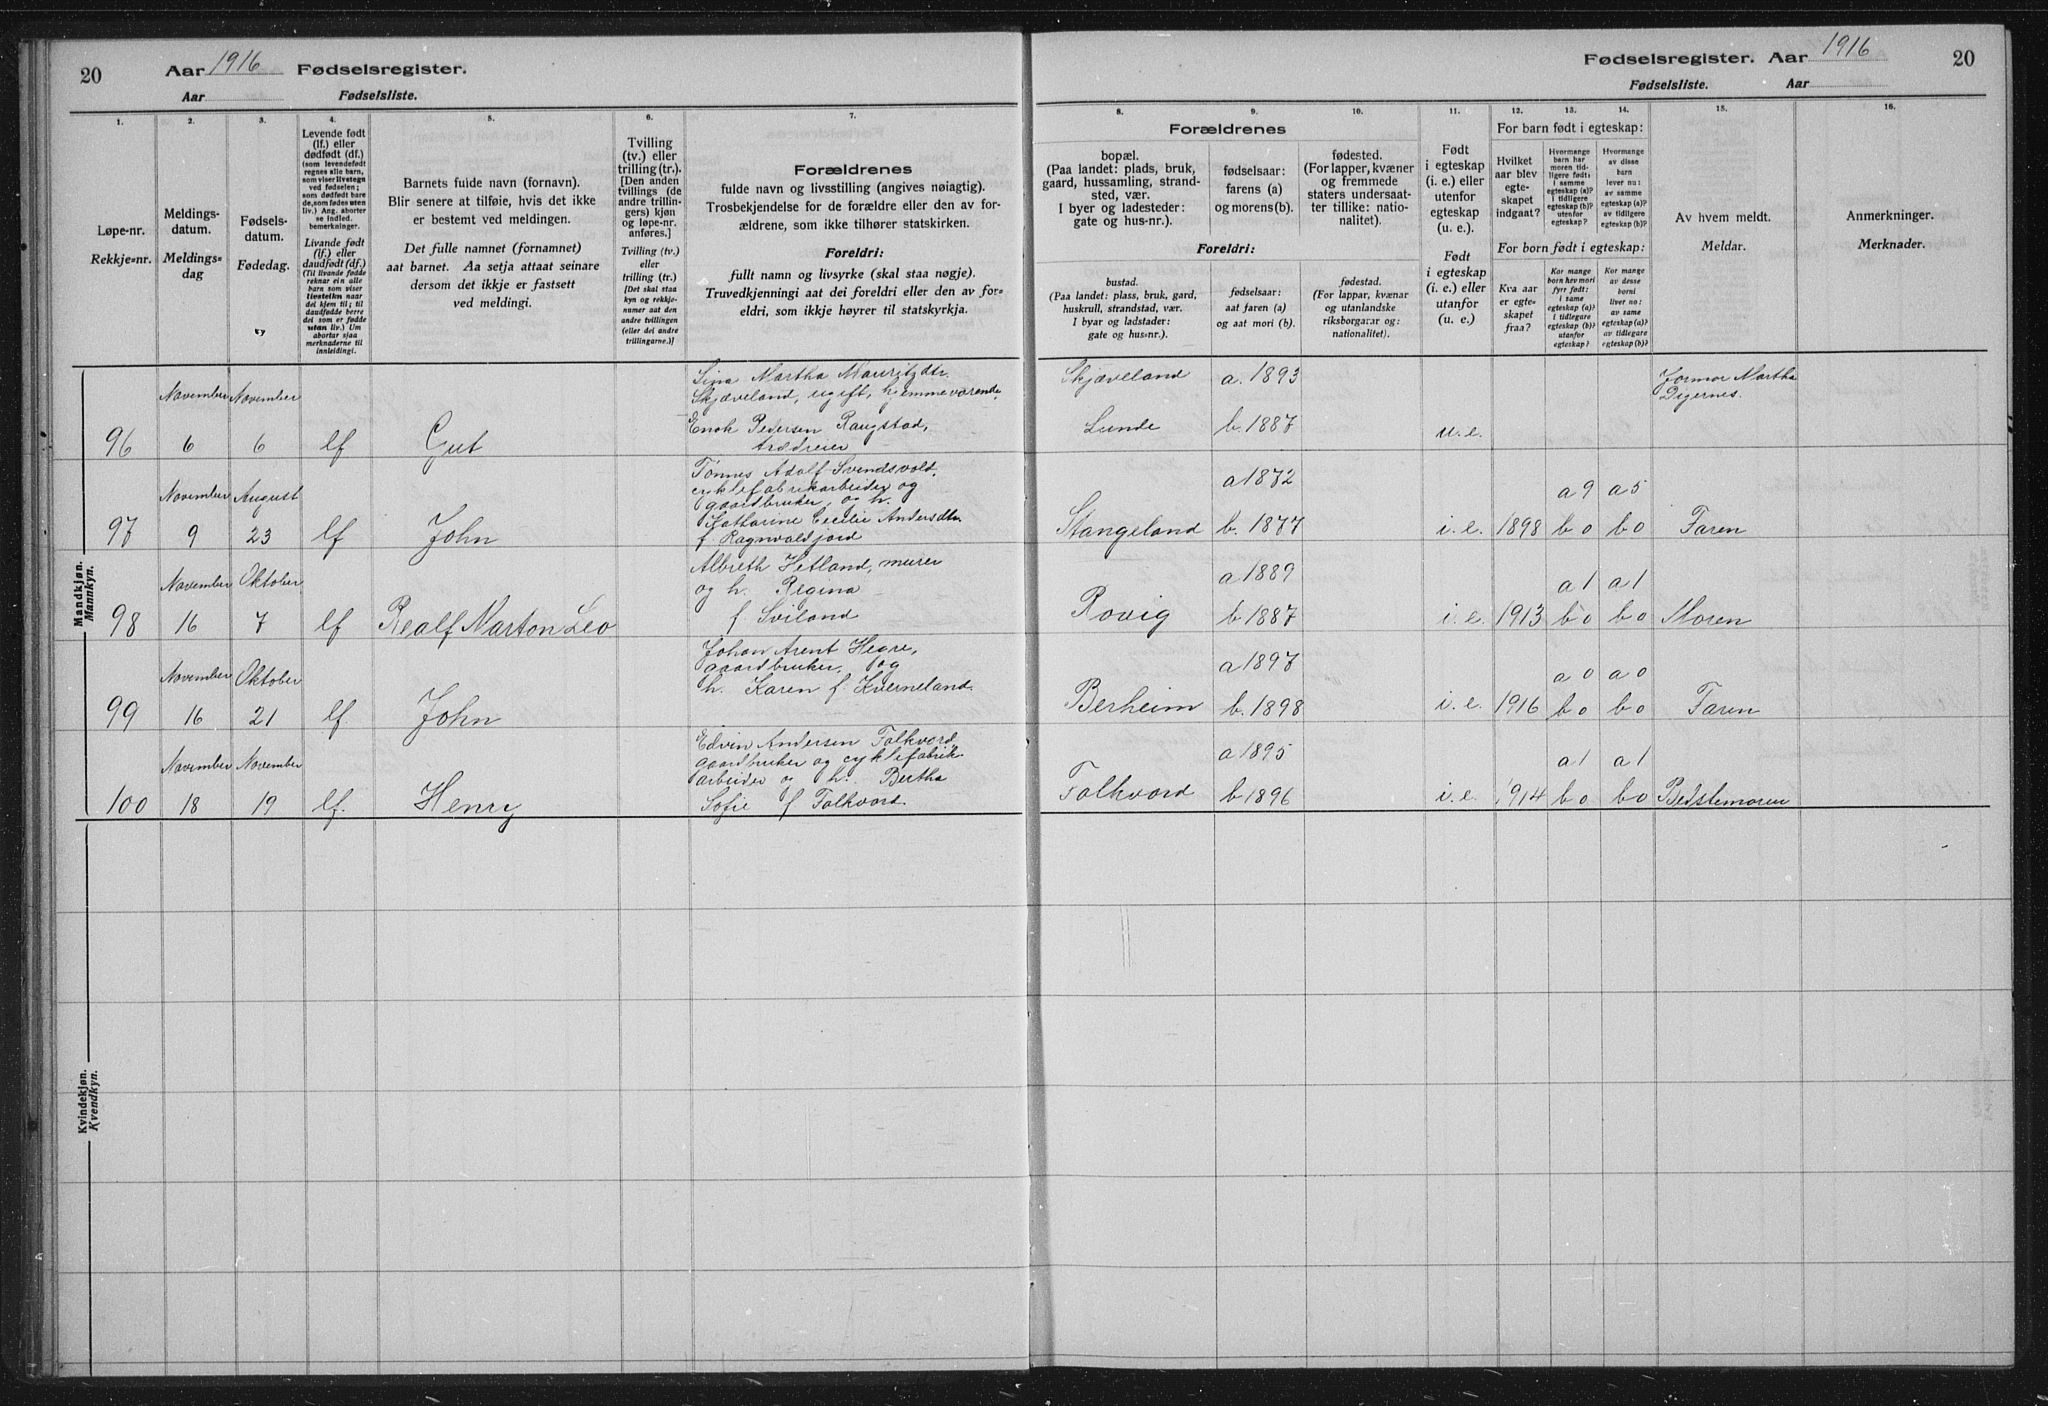 20
Aar 1916 Fødselsregister.
Aar Fødselsliste.
1.
2.
3.
4.
5.
6.
7.
Løpe-nr.
Rekkje=nr.
Meldings-
datum.
Meldings=
dag
Fødsels-
datum.
Fødedag.
Levende født
(lf.) eller
dødfødt (df.)
(som levendefødt
regnes alle barn,
som viser livstegn
ved fødselen;
som dødfødt bare
de, som fødes uten
liv.) Ang. aborter
se indled.
bemerkninger.
Livande født
(lf.) eller
daudfødt (df.)
(Til livande fødde
reknar ein alle
barn som viser
livsteikn naar
dei kjem til; til
daudfødde berre
dei som er fødde
utan liv.) Um
abortar sjaa
merknaderne til
innleidingi.
Barnets fulde navn (fornavn).
Blir senere at tilføie, hvis det ikke
er bestemt ved meldingen.
Det fulle namnet (fornamnet)
aat barnet. Aa setja attaat seinare
dersom det ikkje er fastsett
ved meldingi.
Tvilling
(tv.) eller
trilling (tr.).
[Den anden
tvillings (de
andre trillin-
gers) kjøn
og løpe-nr.
anføres.]
Tvilling (tv.)
eller
trilling (tr.)
[Det skal staa
kyn og rekkje-
numer aat den
andre tvillingen
(eller dei andre
trillingarne.)]
Forældrenes
fulde navn og livsstilling (angives nøiagtig).
Trosbekjendelse for de forældre eller den av for-
ældrene, som ikke tilhører statskirken.
Foreldri:
fullt namn og livsyrke (skal staa nøgje).
Truvedkjenningi aat dei foreldri eller den av for=
eldri, som ikkje høyrer til statskyrkja.
Mandkjøn.
Mannkyn.
96
November
6
November
6
lf
Gut
Sina Martha Mauritzdtr.
Skjæveland, ugift, hjemmeværende
Enok Pedersen Raugstad,
97
November
9
August
23
lf
John
Tønnes Adolf Svendsvold,
cyklefabrikarbeider og
gaardbruker, og h.
Katharine Cecilie Andersdtr.
f Ragnvaldjord
98
November
16
Oktober
7
lf
Realf Marton Leo
Albreth Hetland, murer
og h. Regina
f Sviland
99
November
16
Oktober
21
lf
John
Johan Arent Hegre,
gaardbruker, og
h. Karen f. Kverneland.
100
November
18
November
19
lf.
Henry
Edvin Andersen Folkvord,
gaardbruker og cyklefabrik-
arbeider og h. Bertha
Sofie f Folkvord.
Kvindekjøn.
Kvendkyn.
Fødselsregister. Aar 1916
20
Fødselsliste. Aar
8.
9.
10.
11.
12.
13.
14.
15.
16.
Forældrenes
bopæl.
(Paa landet: plads, bruk,
gaard, hussamling, strand-
sted, vær.
I byer og ladesteder:
gate og hus-nr.).
fødselsaar:
farens (a)
og morens (b).
fødested.
(For lapper, kvæner
og fremmede
staters undersaat-
ter tillike: natio-
nalitet).
Foreldri:
bustad.
(Paa landet: plass, bruk, gard,
huskrull, strandstad, vær.
I byar og ladstader:
gate og hus=nr.).
fødselsaar:
aat faren (a)
og aat mori (b).
fødestad.
(For lappar, kvænar
og utanlandske
riksborgarar og:
nationalitet).
Født
i egteskap
(i. e.) eller
utenfor
egteskap
(u. e.).
Født
i egteskap
(i. e.) eller
utanfor
egteskap
(u. e.).
For barn født i egteskap:
Hvilket
aar blev
egte-
skapet
indgaat?
Hvormange
barn har
moren tid-
ligere født:
i samme
egteskap (a)?
i tidligere
egteskap (b)?
utenfor
egteskap?
Hvormange
av disse
barn
lever nu:
av samme
egteskap (a)?
av tidligere
egteskap (b)?
For born født i egteskap:
Kva aar
er egte-
skapet
fraa?
Kor mange
born hev mori
fyrr født:
i same
egteskap (a)?
i tidlegare
egteskap (b)?
utanfor
egteskap?
Kor mange
av desse
borni
liver no:
av same
egteskap (a)?
av tidlegare
egteskap (b)?
Av hvem meldt.
Meldar.
Anmerkninger.
Merknader.
Skjæveland
Lunde
a. 1893
b. 1887
u. e.
Jormor Martha
Digernes.
Stangeland
a 1872
b. 1877
i. e.
1898
a 9
b 0
a 5
b 0
Faren
Rovig
a 1889
b 1887
i. e.
1913
a 1
b 0
a 1
b 0
Moren
Berheim
a 1897
b. 1898
i. e.
1916
a 0
b 0
a 0
b 0
Faren
Folkvord
a 1895
b 1896
i. e.
1914
a 1
b 0
a 1
b 0
Bedstemoren